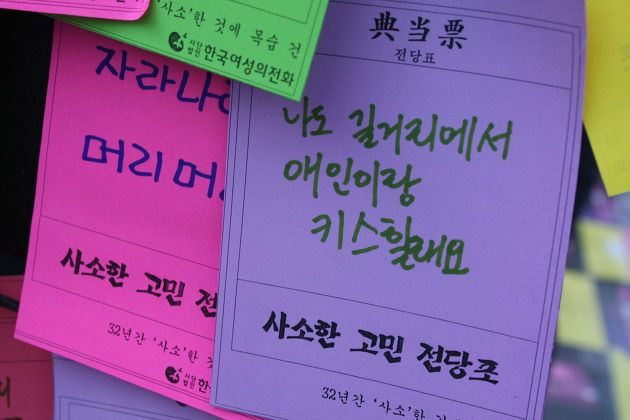 '사소'한 것에 목숨 건
사단법인 한국여성의전화
典当票
전당표
나도 길거리에서
애인이랑
키스할래요
사소한 고민 전당포
32년간 '사소'한 것
자라나
머리
사소한 고민 전
32년간 '사소'한 것
사단법인 한국